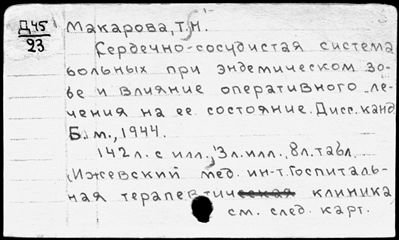 Д45
23
Макарова, Т.Н.
Сердечно-сосудистая система
больных при эндемическом зо-
бе и влияние оперативного ле-
чения на ее состояние. Дисс.канд.
Б.м., 1944.
142л. с илл., 3л.илл., 8л.табл.
(Ижевский мед. ин-т. Госпиталь-
ная терапевтическая клиника
см. след. карт.